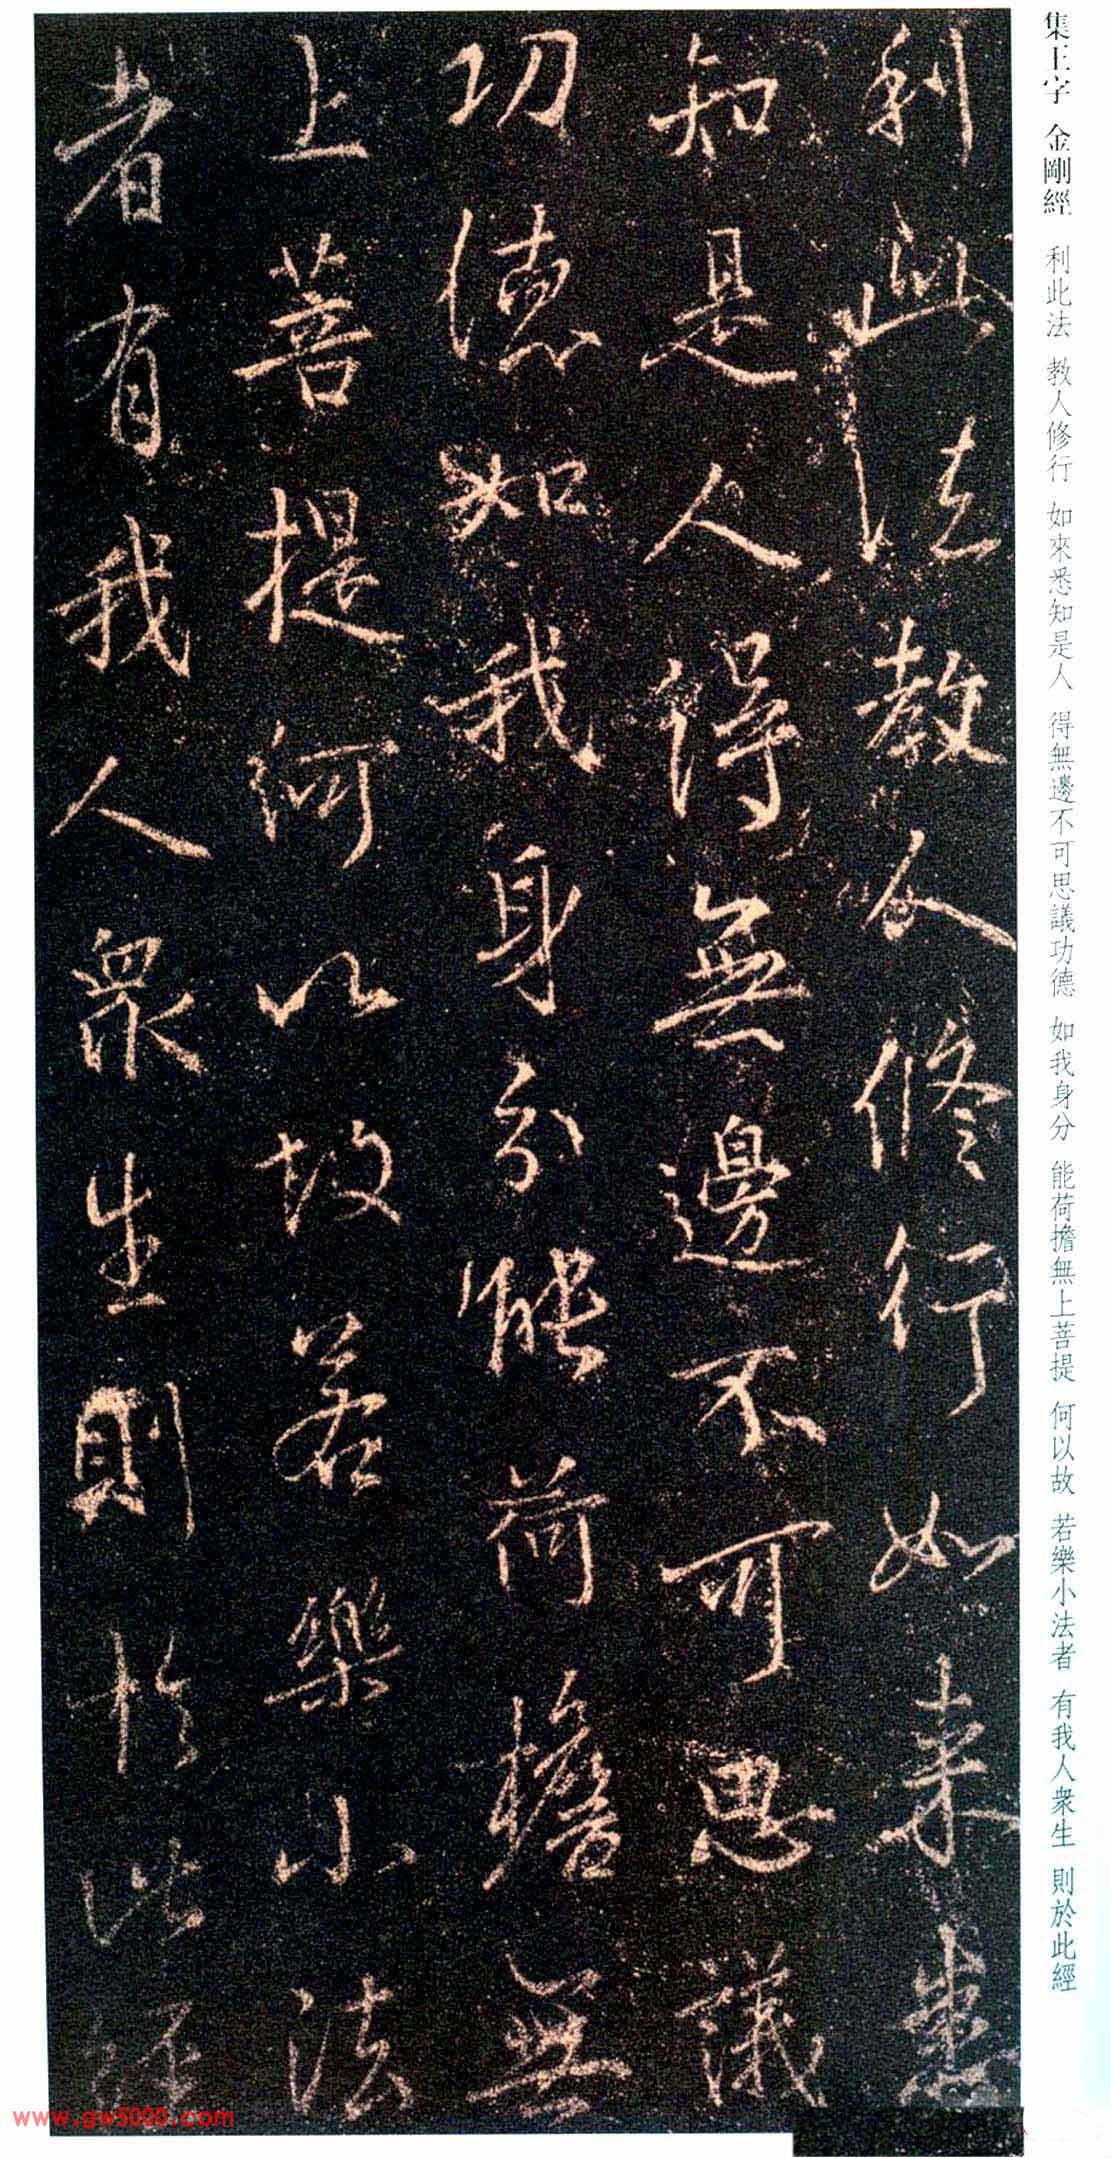 集王字 金剛經 利此法 教人修行 如來悉知是人 得無邊不可思議功德 如我身分 能荷擔無上菩提 何以故 若樂小法者 有我人衆生 則於此經
利此法教人修行如来悉
知是人得無邊不可思議
功德如我身分能荷擔無
上菩提何以故若樂小法
者有我人衆生則於此經
www.gw5000.com